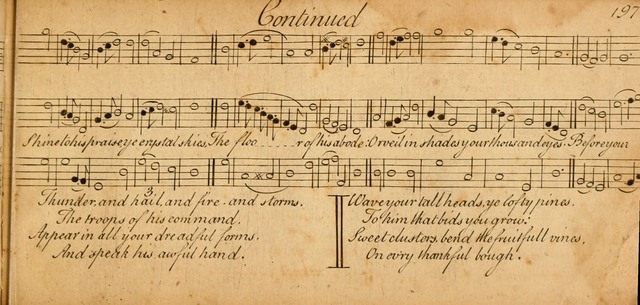 Continued
197
Shine to his praise, ye crystal skies, The floo - - - - r of his abode: Or veil in shades your thousand eyes: Before your
Thunder, and hail, and fire and storms,
3
The troops of his command.
Appear in all your dreadful forms.
And speak his awful hand.
Wave your tall heads, ye lofty pines.
To him that bids you grow:
Sweet clusters, bend the fruitfull vines,
On evry thankful bough.